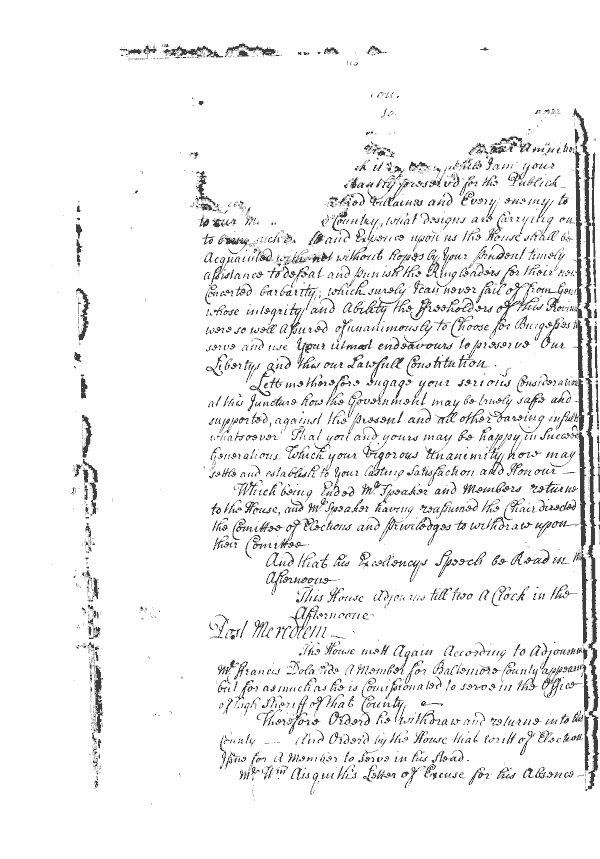 you.
to
our Ampire
it while I am your
preserv'd for the Publick
Villaines and Every enemy to
to our Country, what designs are Carrying on
to and Expence upon us the House shall be
Acquainted with not without hopes by Your prudent timely
assistance to defeat and punish the Ringleaders for their new
Concerted barbarity, which surely I can never fail of from Gent
whose integrity and Ability the ffreeholders of this Province
were so well Assured of unanimously to Choose for Burgesses to
serve and use Your utmost endeavours to preserve Our
Libertys and this our Lawfull Constitution.
Lett me therefore engage your serious Consideration
at this Juncture how the Government may be truely safe and
supported, against the present and all other dareing insults
whatsoever That you and yours may be happy in Succeed
Generations Which your Vigorous Unanimity now may
settle and establish to Your lasting Satisfaction and Honour
Which being Ended Mr. Speaker and Members returne
to the House, and Mr. Speaker having reassumed the Chair directed
the Comittee of Elections and priviledges to withdraw upon
their Comittee
And that his Excellencys Speech be Read in the
Afternoone
This House Adjourns till two A Clock in the
Afternoone
Post Merediem
The House mett Again According to Adjournm
Mr. Francis Dolahide A Member for Baltemore County appears
but for as much as he is Comissionated to serve in the Office
of high Sheriff of that County
Therefore Orderd he withdraw and returne into his
County And Orderd by the House that writt of Election
Issue for A Member to Serve in his stead.
Mr. Wm Aisquith's Letter of Excuse for his Absence